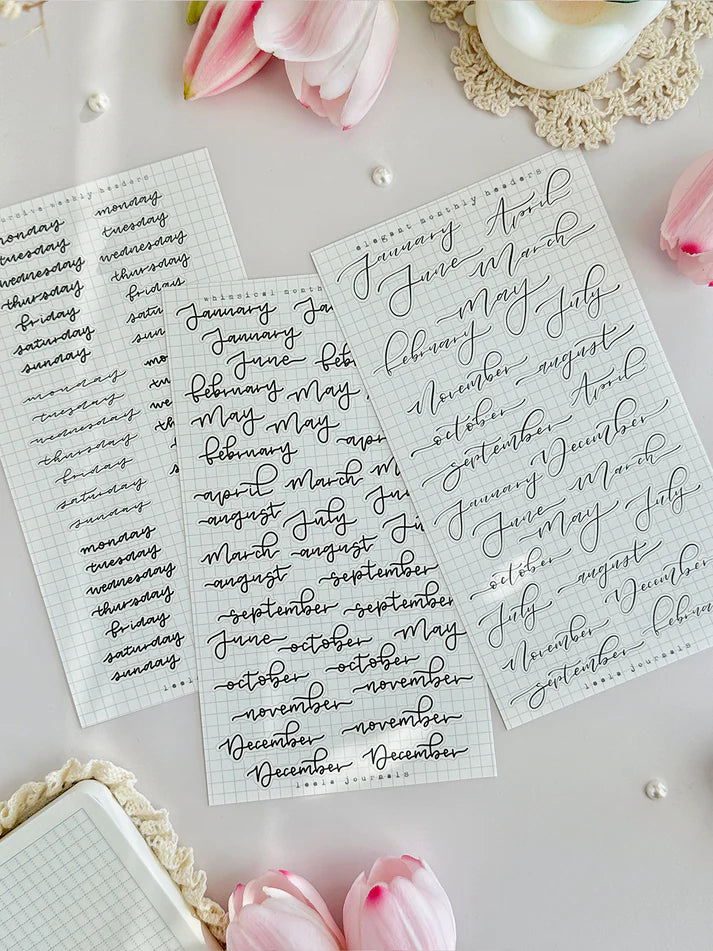 cursive weekly headers
monday monday
tuesday tuesday
wednesday wednesday
thursday thursday
friday friday
saturday
sunday
monday
tuesday
wednesday
thursday
friday
saturday
sunday
monday
tuesday
wednesday
thursday
friday
saturday
sunday
whimsical
January
January
June
february May
May May
february
april March
august July
March august
august september
september september
June october May
october october
november november
December november
December December
leela journals
elegant monthly headers
January April
June March
May
february July
November august
october April
september
January December
June March
May July
october august
July December
November
september
leela journals